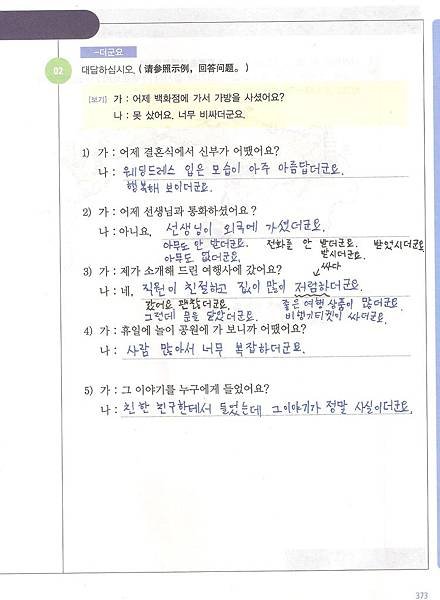 -더군요
02 대답하십시오. (请参照示例，回答问题。)
[보기] 가 : 어제 백화점에 가서 가방을 사셨어요?
나 : 못 샀어요. 너무 비싸더군요.
1) 가 : 어제 결혼식에서 신부가 어땠어요?
나 : 웨딩드레스 입은 모습이 아주 아름답더군요.
행복해 보이더군요.
2) 가 : 어제 선생님과 통화하셨어요?
나 : 아니요, 선생님이 외국에 가셨더군요.
아무도 안 받더군요. 전화를 안 받더군요. 받었시더군요
아무도 없더군요. 받시더군요.
싸다
3) 가 : 제가 소개해 드린 여행사에 갔어요?
나 : 네, 직원이 친절하고 값이 많이 저렴하더군요.
갔어요 괜찮더군요. 좋은 여행 상품이 많더군요.
그런데 문을 닫았더군요. 비행기티켓이 싸더군요.
4) 가 : 휴일에 놀이 공원에 가 보니까 어땠어요?
나 : 사람 많아서 너무 복잡하더군요.
5) 가 : 그 이야기를 누구에게 들었어요?
나 : 친한 친구한테서 들었는데, 그이야기가 정말 사실이더군요.
373